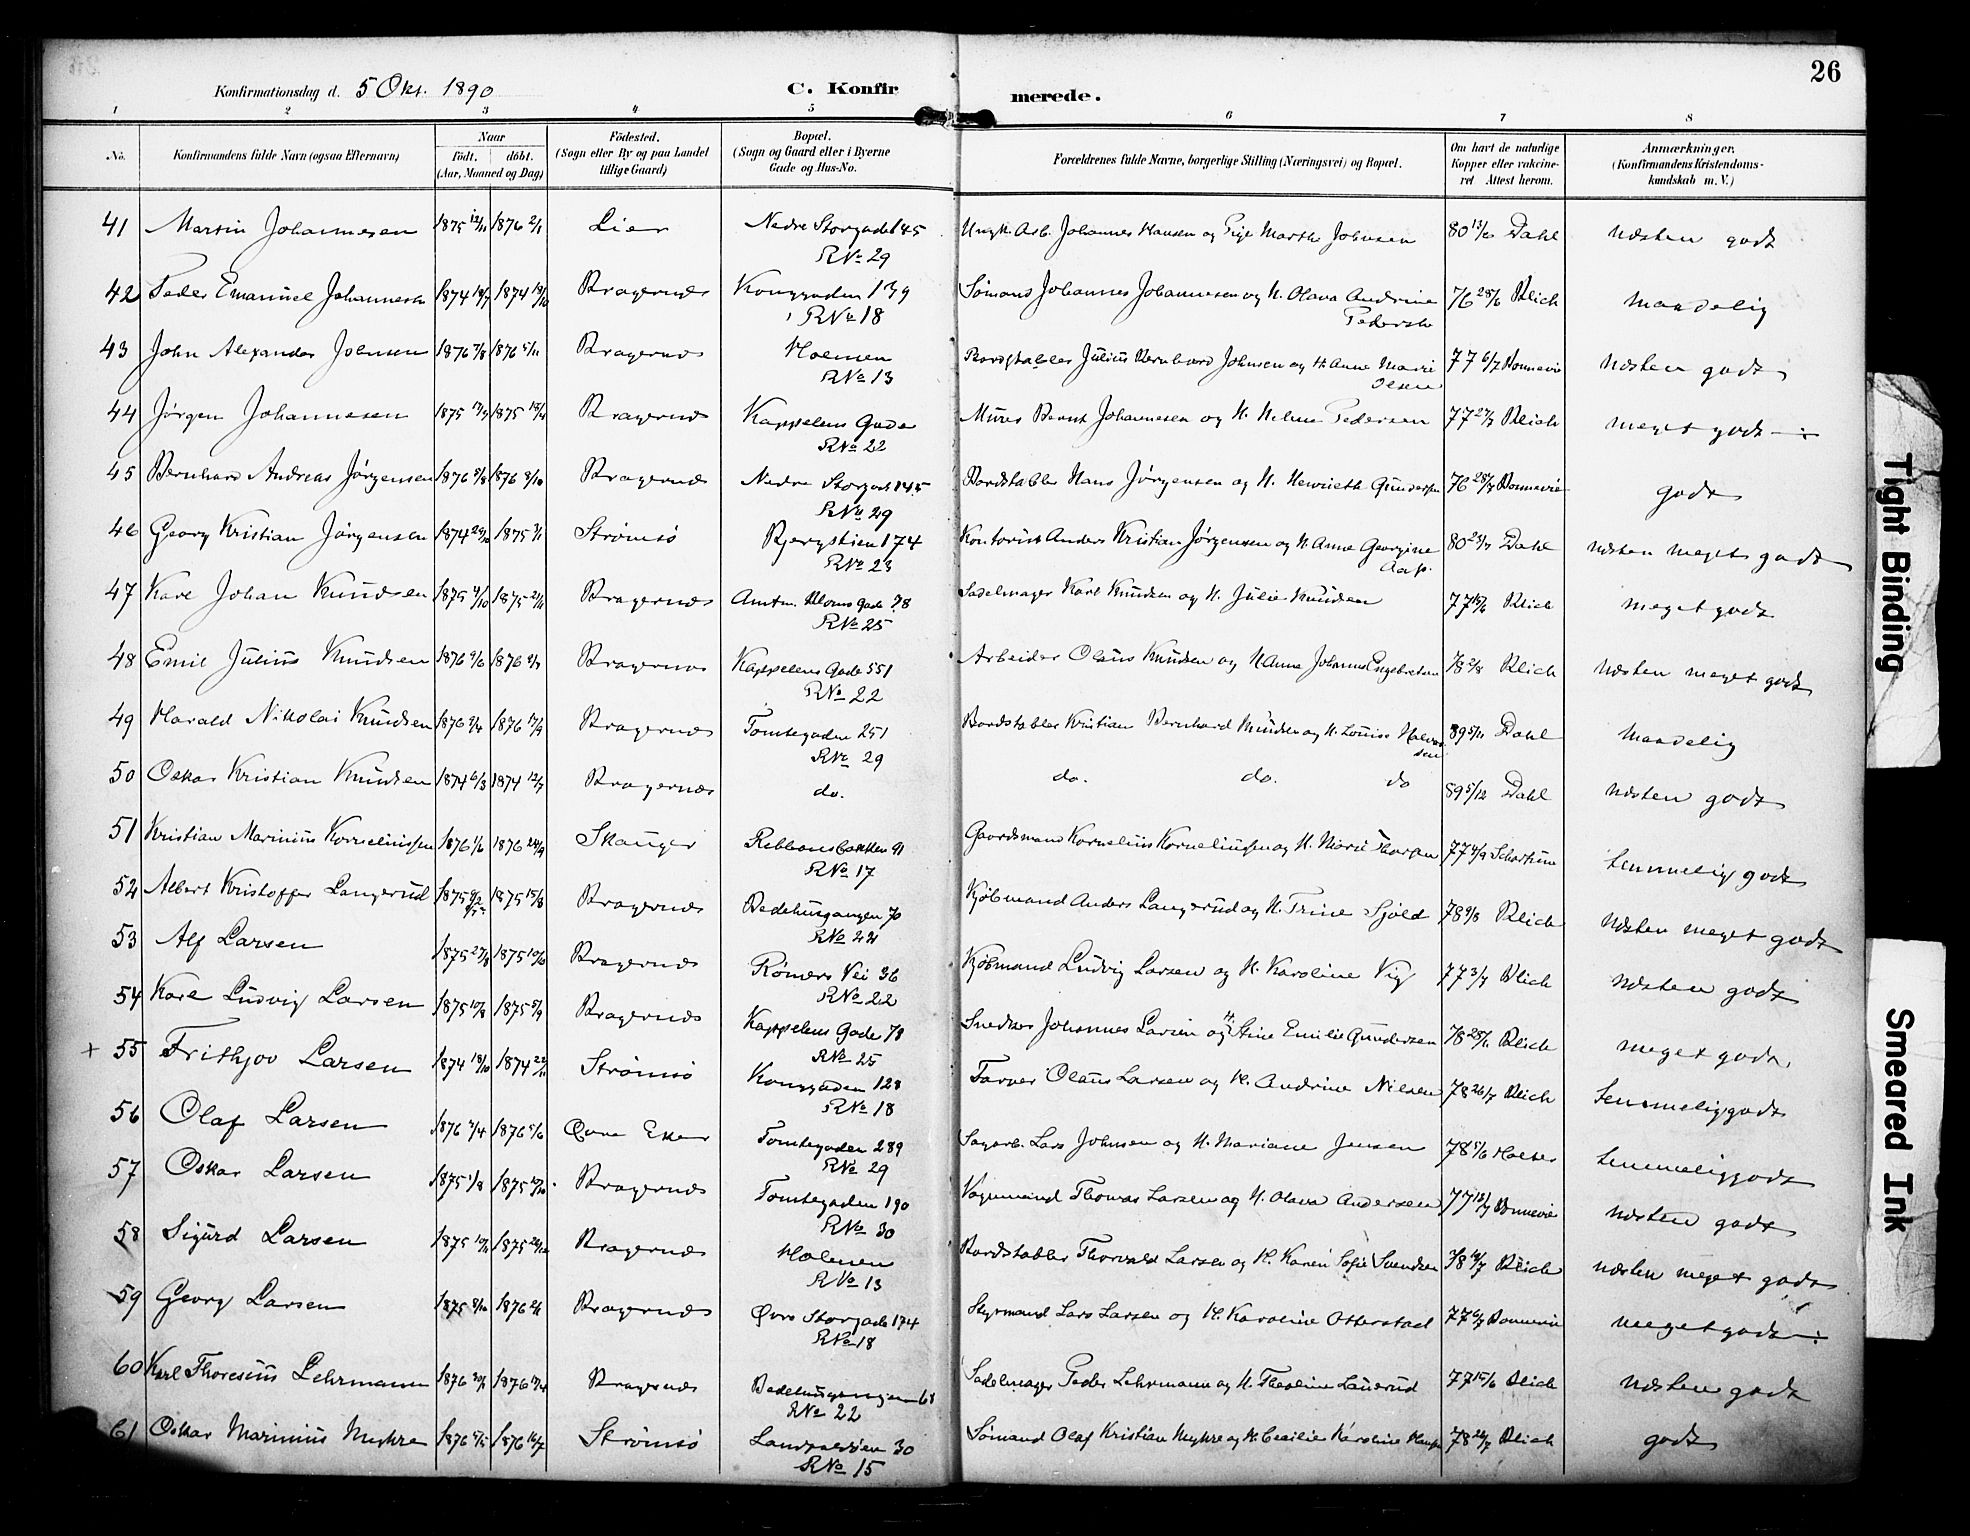 26
Konfirmationsdag d. 5 Okt. 1890
C. Konfirmerede.
1 2 3 4 5 6 7 8
No. Konfirmandens fulde Navn (ogsaa Efternavn) Naar födt. döbt. (Aar, Maaned og Dag) Födested. (Sogn eller By og paa Landet tillige Gaard) Bopæl. (Sogn og Gaard eller i Byerne Gade og Hus-No. Forældrenes fulde Navne, borgerlige Stilling (Næringsvei) og Bopæl. Om havt de naturlige Kopper eller vaccineret Attest herom. Anmærkninger. (Konfirmandens Kristendomskundskab m.V.)
41 Martin Johannesen 1875 12/11 1876 2/1 Lier Nedre Storgade 145 R No 29 Ungk. Arb. Johannes Hansen og Pige Marthe Johnsen 80 Dahl næsten godt
42 Peder Emanuel Johannesen 1874 1874 Bragernæs Konggaden 139 R No 18 Sömand Johannes Johannesen og H. Olava Andrine Pedersen 76 Blich maadelig
43 John Alexander Johnsen 1876 7/8 1876 5/11 Bragernæs Holmen R No 13 Bordstabler Julius Bernhard Johnsen og H. Anne Marie Olsen 77 6/7 Bonnevie næsten godt
44 Jörgen Johannesen 1875 1875 Bragernæs Kappelens Gade R No 22 Murer Bernt Johannesen og H. Helene Pedersen 77 27/7 Blich meget godt -:-
45 Bernhard Andreas Jörgensen 1876 1876 8/10 Bragernæs Nedre Storgade 145 R No 29 Bordstabler Hans Jörgensen og H. Henriette Gundersen 76 28/7 Bonnevie godt
46 Georg Kristian Jörgensen 1874 1875 3/1 Strömsö Bjergstien 174 R No 23 Kontorist Anders Kristian Jörgensen og H. Anne Georgine Aas. 80 Dahl næsten meget godt
47 Karl Johan Knudsen 1875 1875 21/11 Bragernæs Amtm. Bloms Gade 78 R No 25 Sadelmager Karl Knudsen og H. Julie Knudsen 77 Blich meget godt
48 Emil Julius Knudsen 1876 1876 Bragernæs Kappelens Gade 551 R No 22 Arbeider Olaus Knudsen og H. Anne Johanne Engebretsen 78 2/8 Blich næsten meget godt
49 Harald Nikolai Knudsen 1876 1876 17/9 Bragernæs Tomtegaden 251 R No 29 Bordstabler Kristian Bernhard Knudsen og H. Louise Halvorsen 89 5/12 Dahl maadelig
50 Oskar Kristian Knudsen 1874 6/3 1874 12/7 Bragernæs do. do. do. do 89 5/12 Dahl næsten godt
51 Kristian Marinius Korneliussen 1876 1/6 1876 24/9 Skauger Rebbansbakken 91 R No 17 Gaardmand Kornelius Korneliussen og H. Marie Thorsen 77 4/9 temmelig godt
52 Albert Kristoffer Langerud 1875 1875 15/8 Bragernæs Bedehusgangen 70 R No 22 Kjöbmand Anders Langerud og H. Trine Sjöld 78 9/8 Blich næsten meget godt
53 Alf Larsen 1875 1875 Bragernæs Römers Vei 36 R No 22 Kjöbmand Ludvig Larsen og H. Karoline Vig 77 3/7 Blich næsten godt
54 Karl Ludvig Larsen 1875 10/8 1875 5/9 Bragernæs Kappelens Gade 78 R No 25 Snedker Johannes Larsen og H. Stine Emilie Gundersen 78 Blich meget godt
+ 55 Frithjov Larsen 1874 18/10 1874 22/11 Strömsö Konggaden 128 R No 18 Farver Olaus Larsen og H. Andrine Nielsen 78 26/7 Blich temmelig godt
56 Olaf Larsen 1876 2/4 1876 5/6 Øvre Eker Tomtegaden 289 R No 29 Sagarb. Lars Johnsen og H. Mariane Jensen 78 5/6 temmelig godt
57 Oskar Larsen 1875 1/8 1875 Bragernæs Tomtegaden 190 R No 30 Vognmand Thomas Larsen og H. Olava Andersen 77 Bonnevie næsten godt
58 Sigurd Larsen 1875 1875 Bragernæs Holmen R No 13 Bordstabler Thorvald Larsen og H. Karen Sofie Svendsen 78 Blich næsten meget godt
59 Georg Larsen 1875 1876 Bragernæs Øvre Storgade 174 R No 18 Styrmand Lars Larsen og H. Karoline Otterstad 77 Bonnevie meget godt -:-
60 Karl Thoresius Lehrmann 1876 1876 Bragernæs Bedehusgangen 68 R No 22 Sadelmager Peder Lehrmann og H. Theoline Laurud 77 15/6 Blich næsten godt
61 Oskar Marinius Myhre 1876 1876 16/7 Strömsö 30 R No 15 Sömand Olaf Kristian Myhre og H. Cecilie Karoline 78 Blich godt
Tight Binding
Smeared Ink